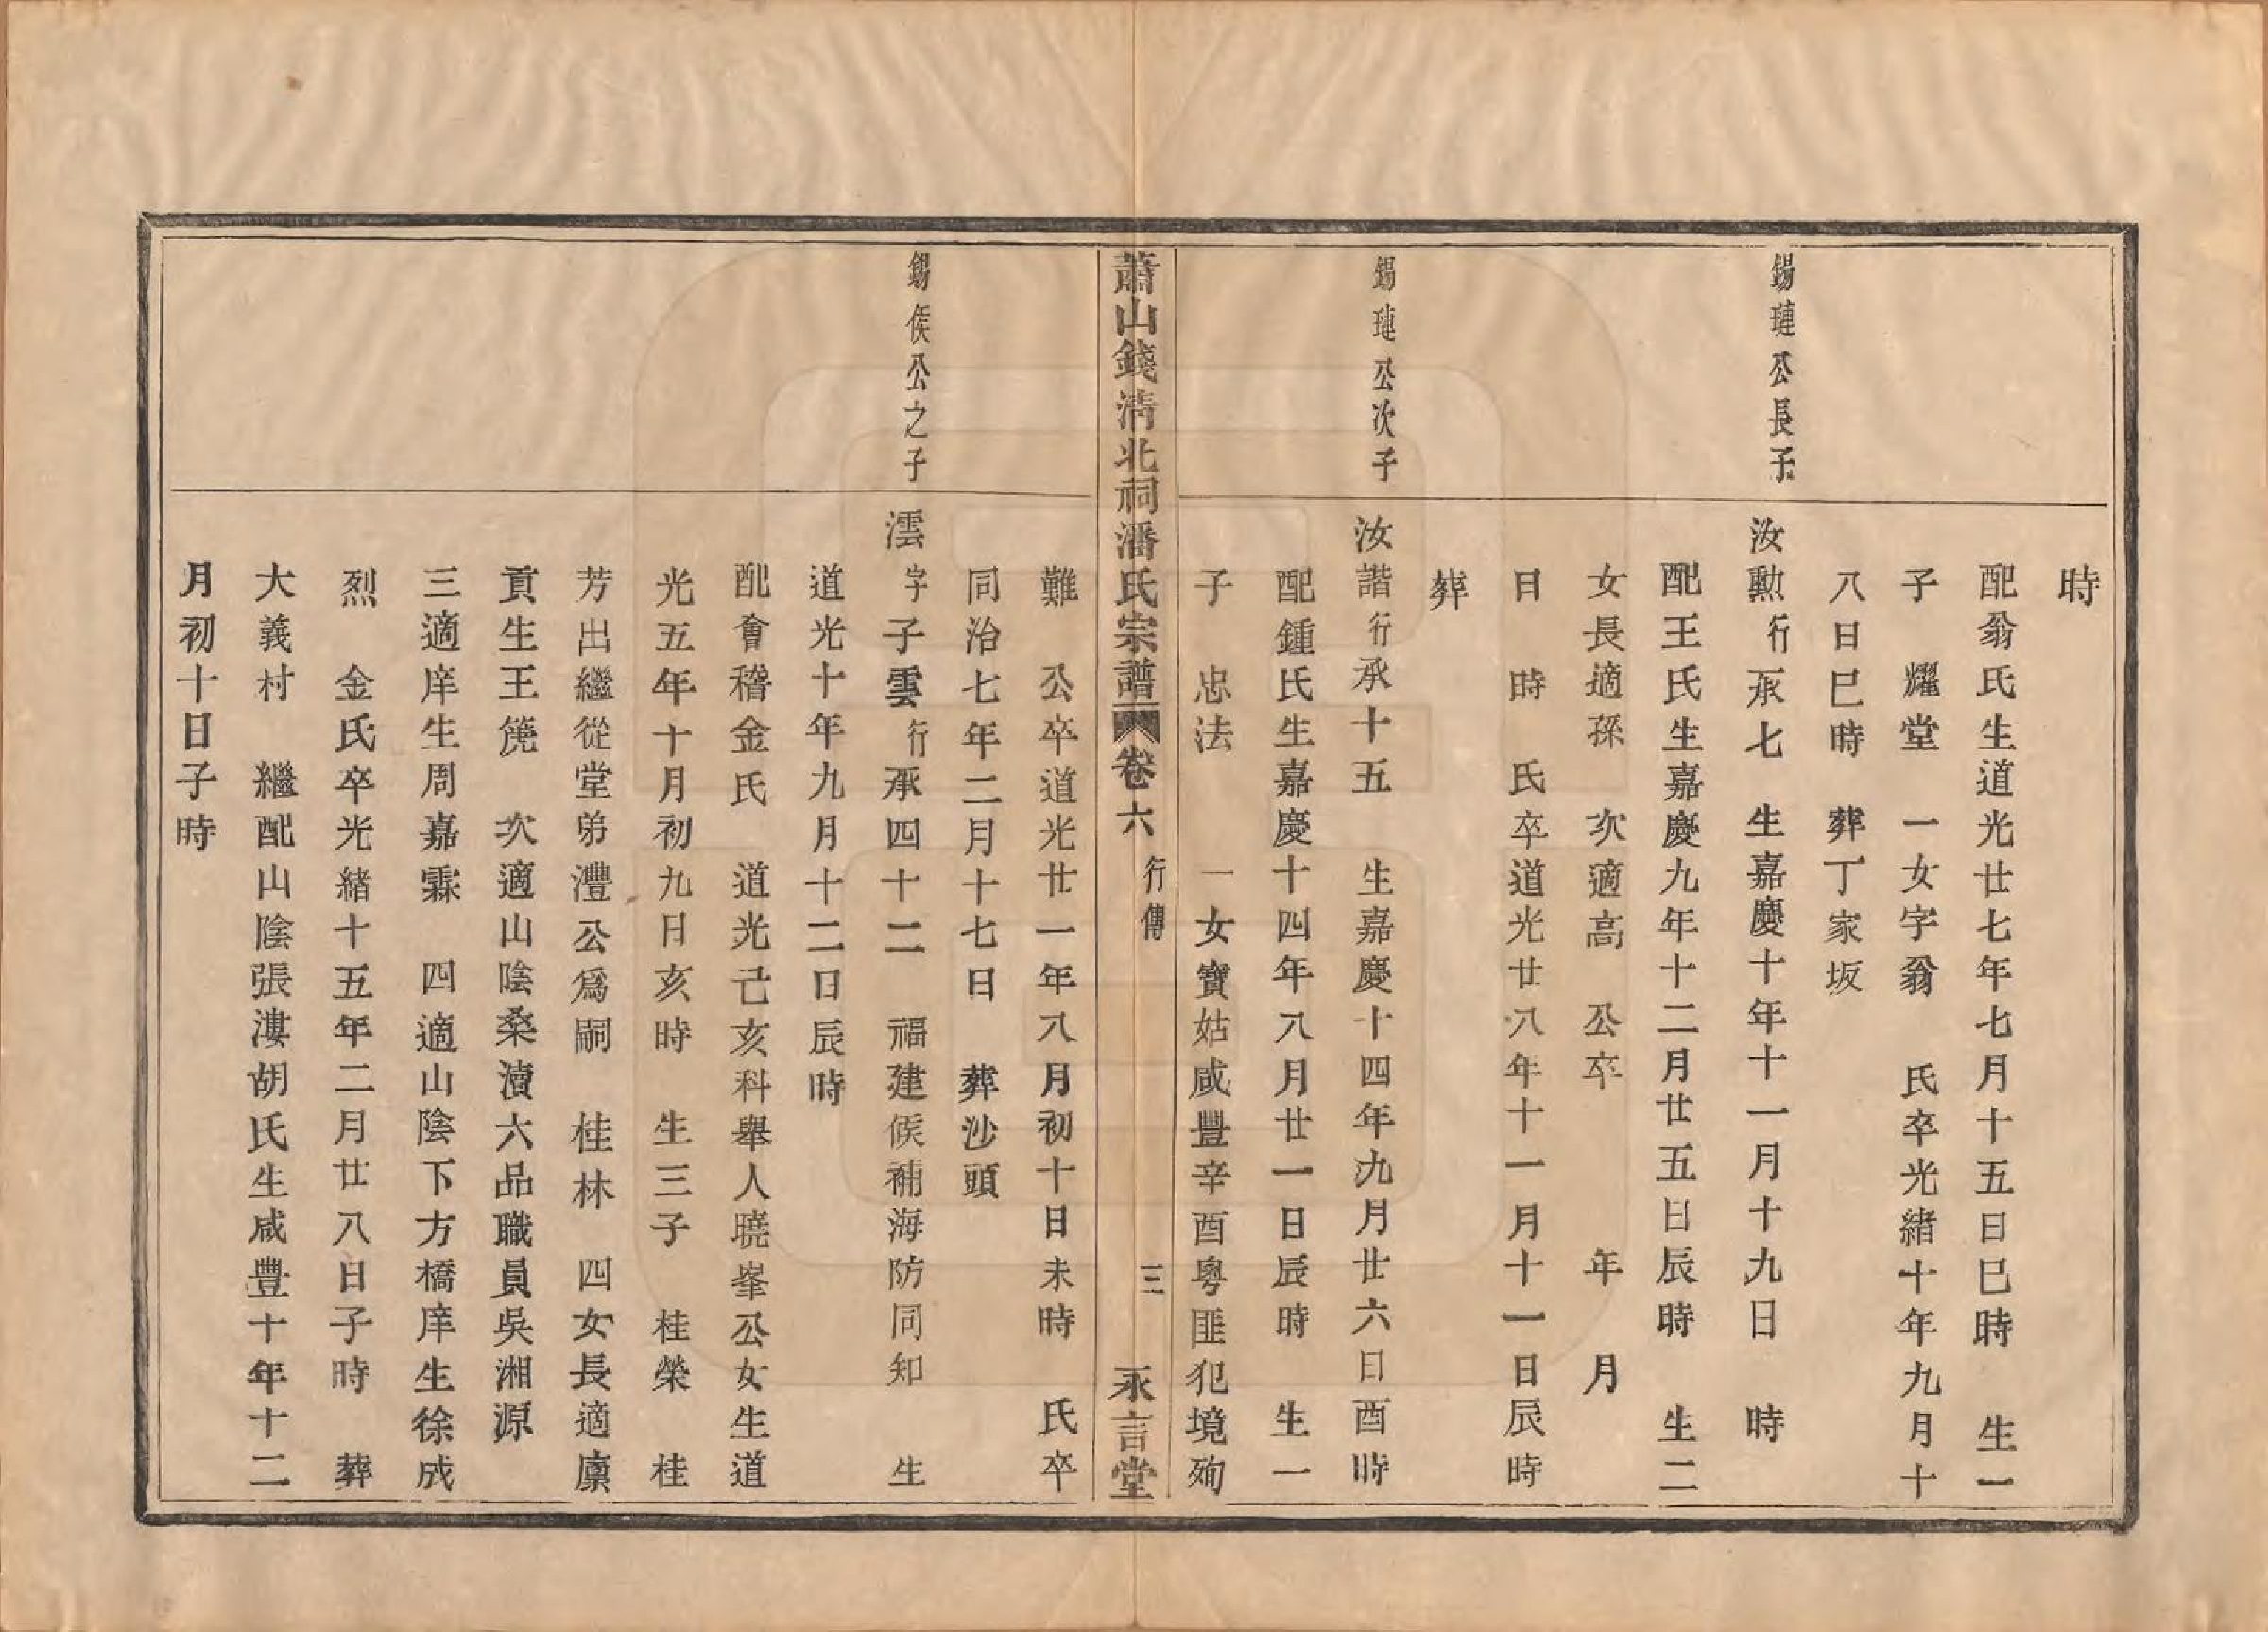 時
配翁氏生道光廿七年七月十五日巳時　生一
子　耀堂　一女字翁　氏卒光緒十年九月十
八日巳時　葬丁家坂
錫璉公長子
汝勲行承七　生嘉慶十年十一月十九日　時
配王氏生嘉慶九年十二月廿五日辰時　生二
女長適孫　次適高　公卒　　　年　月
日　時　氏卒道光廿八年十一月十一日辰時
葬
錫璉公次子
汝諧行承十五　生嘉慶十四年九月廿六日酉時
配鍾氏生嘉慶十四年八月廿一日辰時　生一
子　忠法　　一女寶姑咸豐辛酉粵匪犯境殉
蕭山錢清北祠潘氏宗譜　卷六　行傳　三　承言堂
難　公卒道光廿一年八月初十日未時　氏卒
同治七年二月十七日　葬沙頭
錫侯公之子
澐字子雲行承四十二　福建候補海防同知　生
道光十年九月十二日辰時
配會稽金氏　道光己亥科舉人曉峯公女生道
光五年十月初九日亥時　生三子　桂榮　桂
芳出繼從堂弟灃公爲嗣　桂林　四女長適廩
貢生王篪　次適山陰桑瀆六品職員吳湘源
三適庠生周嘉霖　四適山陰下方橋庠生徐成
烈　金氏卒光緒十五年二月廿八日子時　葬
大義村　繼配山陰張漊胡氏生咸豐十年十二
月初十日子時